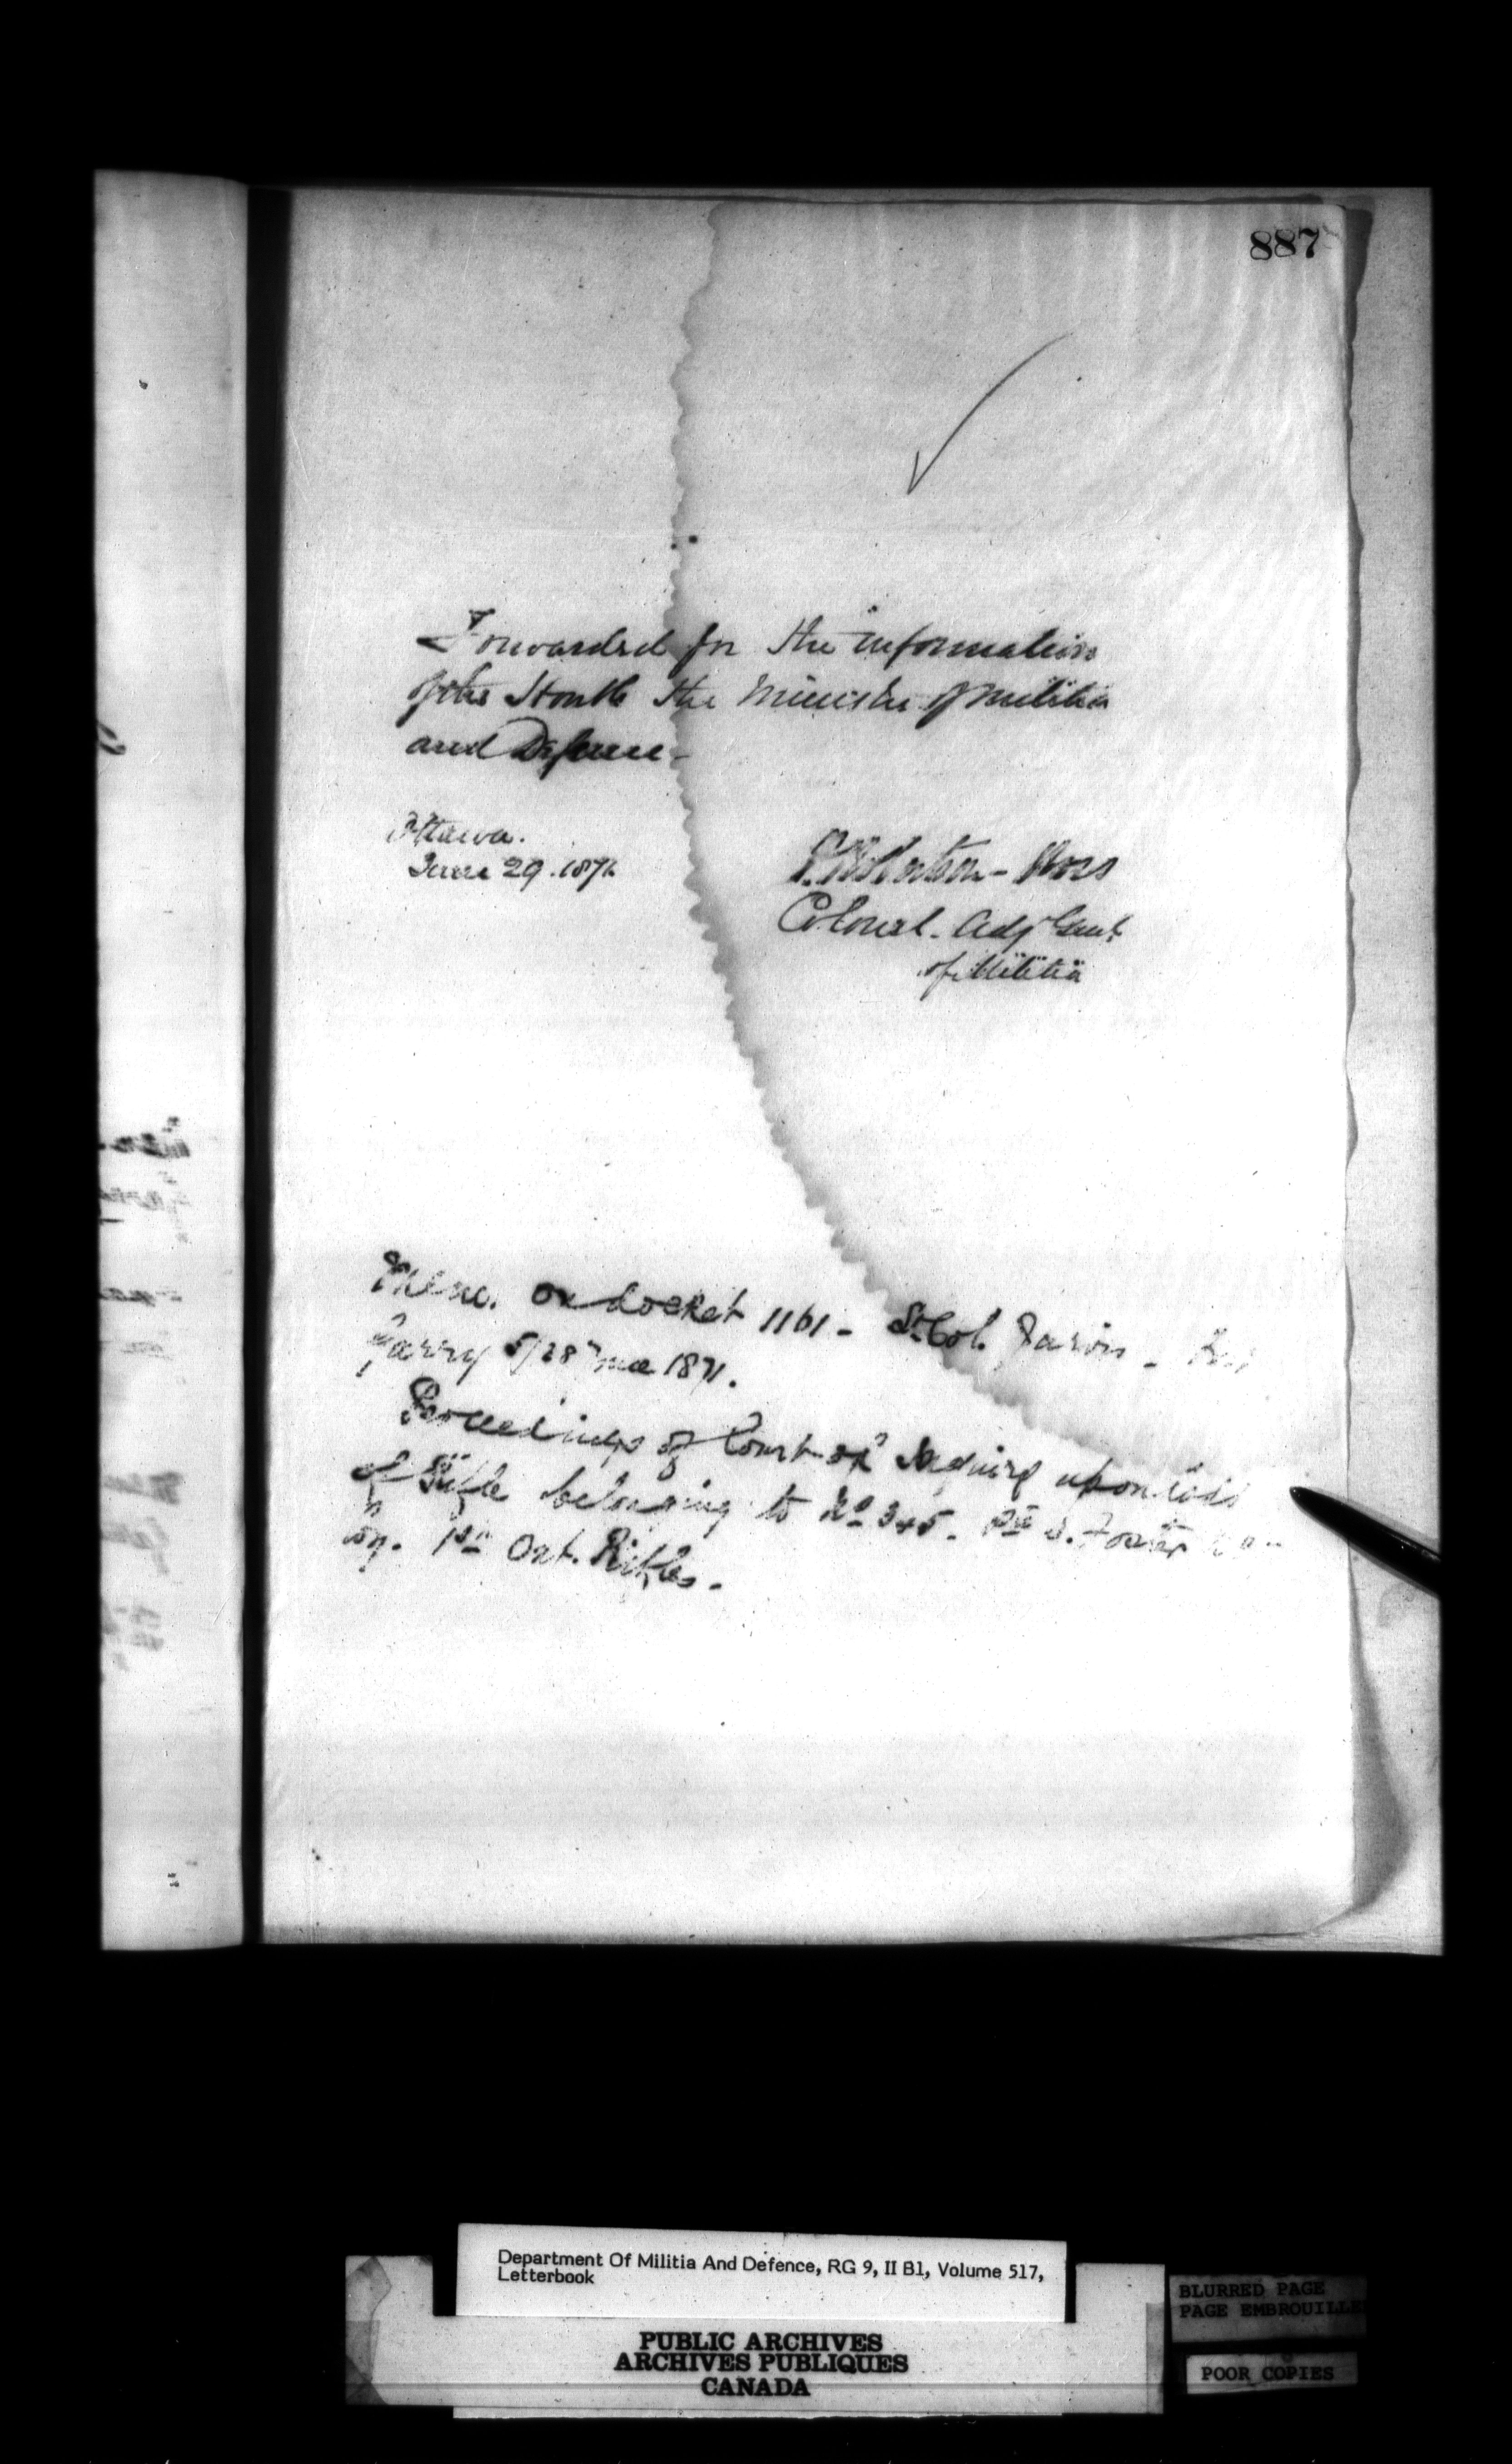 887
Forwarded for the information
of the Honble the Minister of Militia
and Defence -
Ottawa.
June 29. 1871.
P. Robertson - Ross
Colonel. Adj Genl.
of Militia
Memo. on docket 1161 - Lt Col. Jarvis -
Garry 5/28 1871.
Proceedings of Court of Inquiry upon loss
of Rifle belonging to No 345. Pte S. Foster
Coy. 1st Ont. Rifles.
Department Of Militia And Defence, RG 9, II B1, Volume 517,
Letterbook
PUBLIC ARCHIVES
ARCHIVES PUBLIQUES
CANADA
BLURRED PAGE
PAGE EMBROUILLE
POOR COPIES